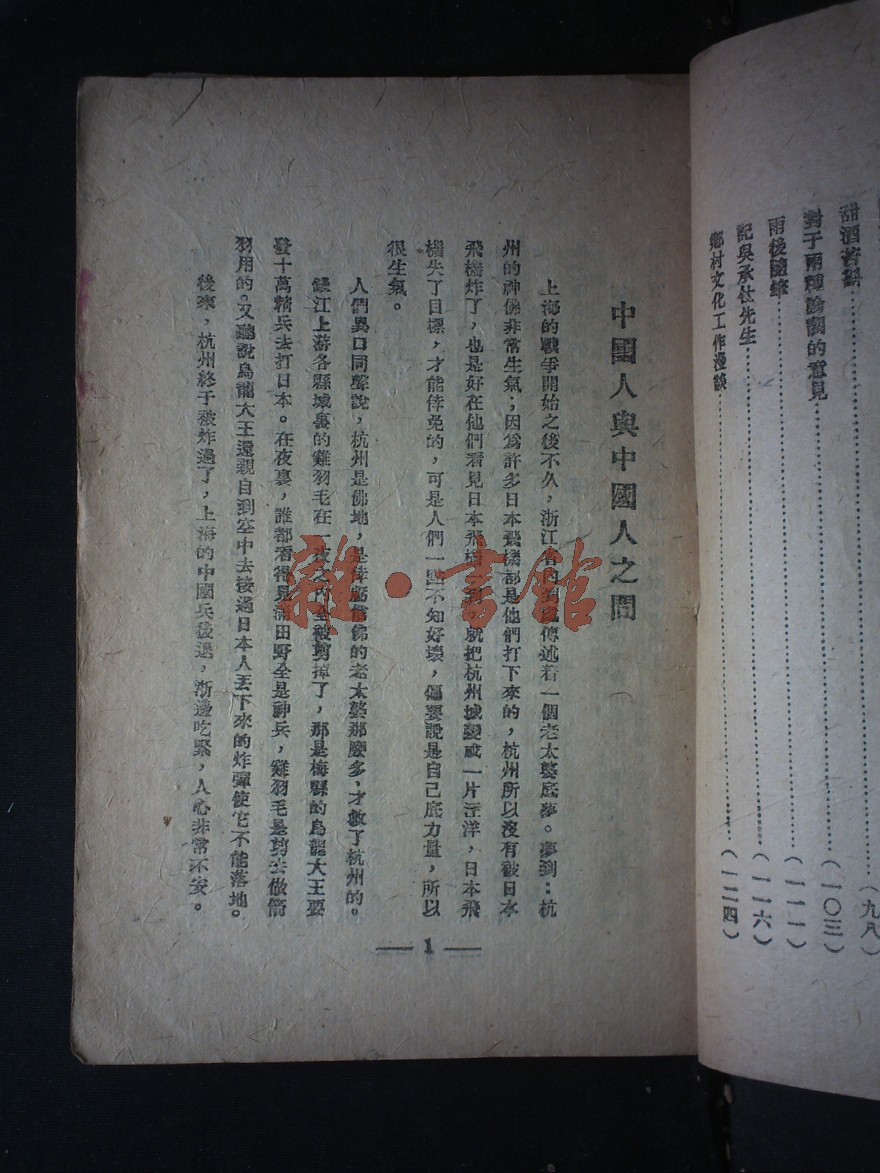 甜酒
對于兩種論調的意見……(一〇三)
雨後隨……(一一一)
記吳承仕先生……(一一六)
鄉村文化工作漫談……(一二四)
(九八)
中國人與中國人之間
上海的戰爭開始之後不久，浙江省內 傳述着一個老太婆底夢。夢到：杭
州的神佛非常生氣；因爲許多日本飛機都是他們打下來的，杭州所以沒有被日本
飛機炸了，也是好在他們看見日本飛機 到，就把杭州城變成一片汪洋，日本飛
機失了目標，才能倖免的，可是人們一點不知好壞，偏要說是自己底力量，所以
很生氣。
人們異口同聲說，杭州是佛地，是 信佛的老太婆那麼多，才救了杭州的。
江上游各縣城裏的雞羽毛在一夜之內全被剪掉了，那是梅縣的烏龍大王要
發十萬精兵去打日本。在夜裏，誰都看得見滿田野全是神兵，雞羽毛是剪去做箭
羽用的。又聽說烏龍大王還親自到空中去接過日本人丟下來的炸彈使它不能落地。
後來，杭州終于被炸過了，上海的中國兵後退，浙邊吃緊，人心非常不安。
— 1 —
雜·書館